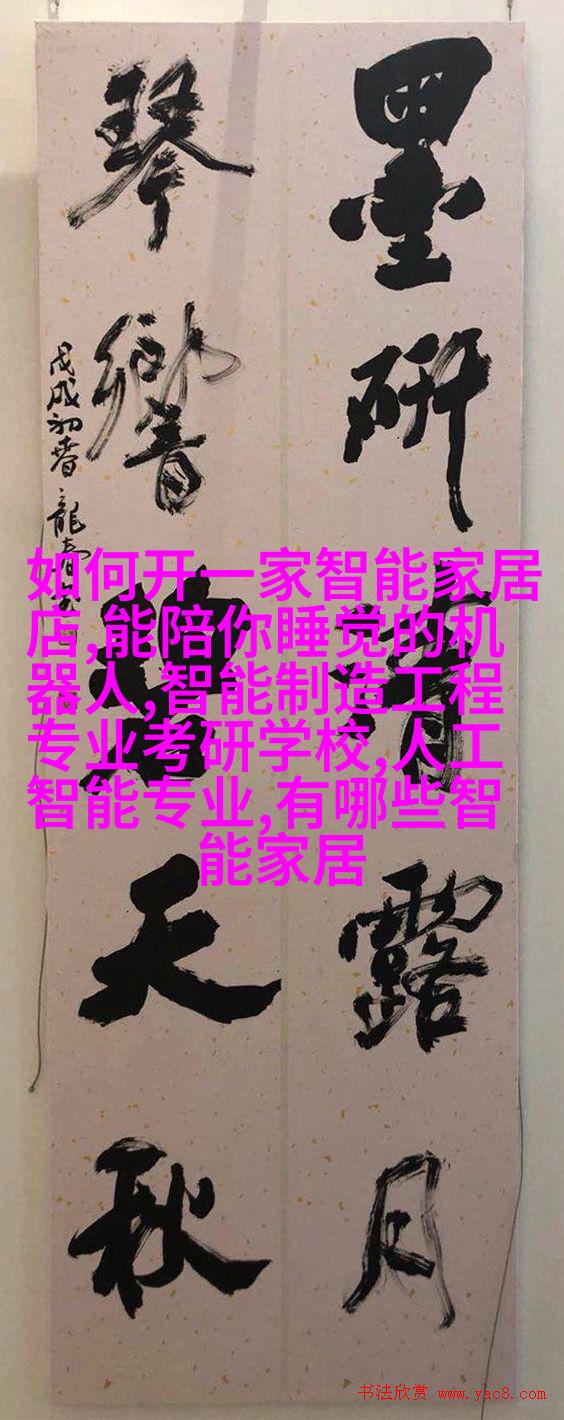 墨研清露月
琴響碧天秋
戊戌初春龍
如何开一家智能家居
店,能陪你睡觉的机
器人,智能制造工程
专业考研学校,人工
智能专业,有哪些智
能家居
书法欣赏 www.yac8.com